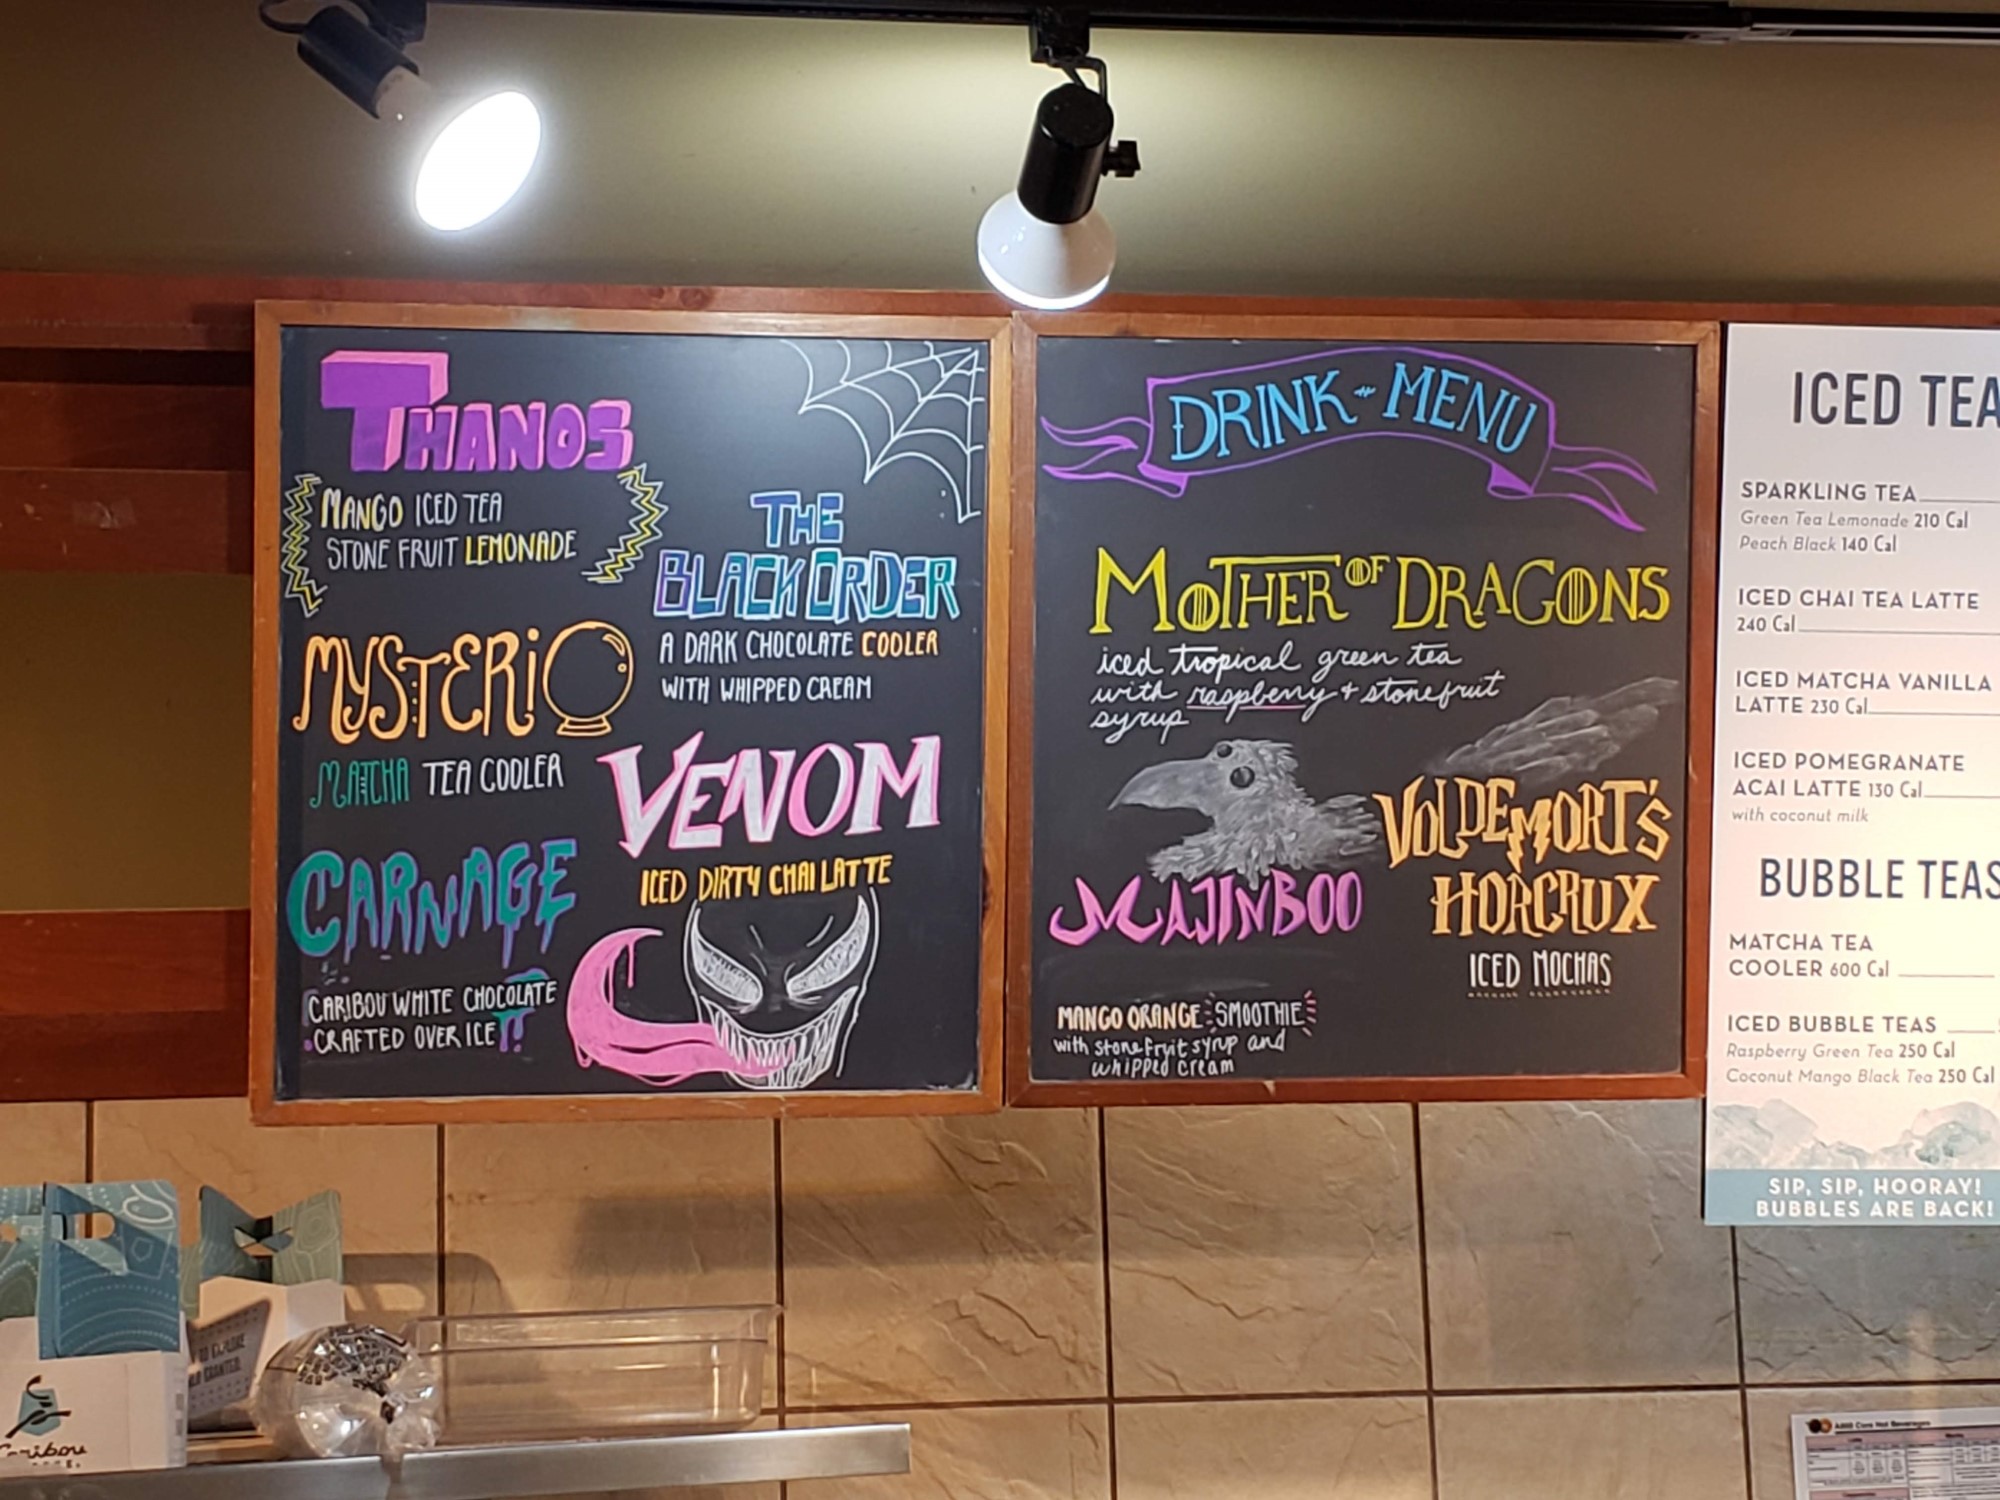 THANOS
MANGO ICED TEA
STONE FRUIT LEMONADE
THE
BLACK ORDER
A DARK CHOCOLATE COOLER
WITH WHIPPED CREAM
MYSTERIO
MATCHA TEA COOLER
VENOM
ICED DIRTY CHAI LATTE
CARNAGE
CARIBOU WHITE CHOCOLATE
CRAFTED OVER ICE
DRINK - MENU
MOTHER OF DRAGONS
iced tropical green tea
with raspberry + stonefruit
syrup
VOLDEMORT'S
HORCRUX
ICED MOCHAS
MAJINBOO
MANGO ORANGE SMOOTHIE
with stonefruit syrup and
whipped cream
ICED TEA
SPARKLING TEA
Green Tea Lemonade 210 Cal
Peach Black 140 Cal
ICED CHAI TEA LATTE
240 Cal
ICED MATCHA VANILLA
LATTE 230 Cal
ICED POMEGRANATE
ACAI LATTE 130 Cal
with coconut milk
BUBBLE TEAS
MATCHA TEA
COOLER 600 Cal
ICED BUBBLE TEAS
Raspberry Green Tea 250 Cal
Coconut Mango Black Tea 250 Cal
SIP, SIP, HOORAY!
BUBBLES ARE BACK!
Caribou